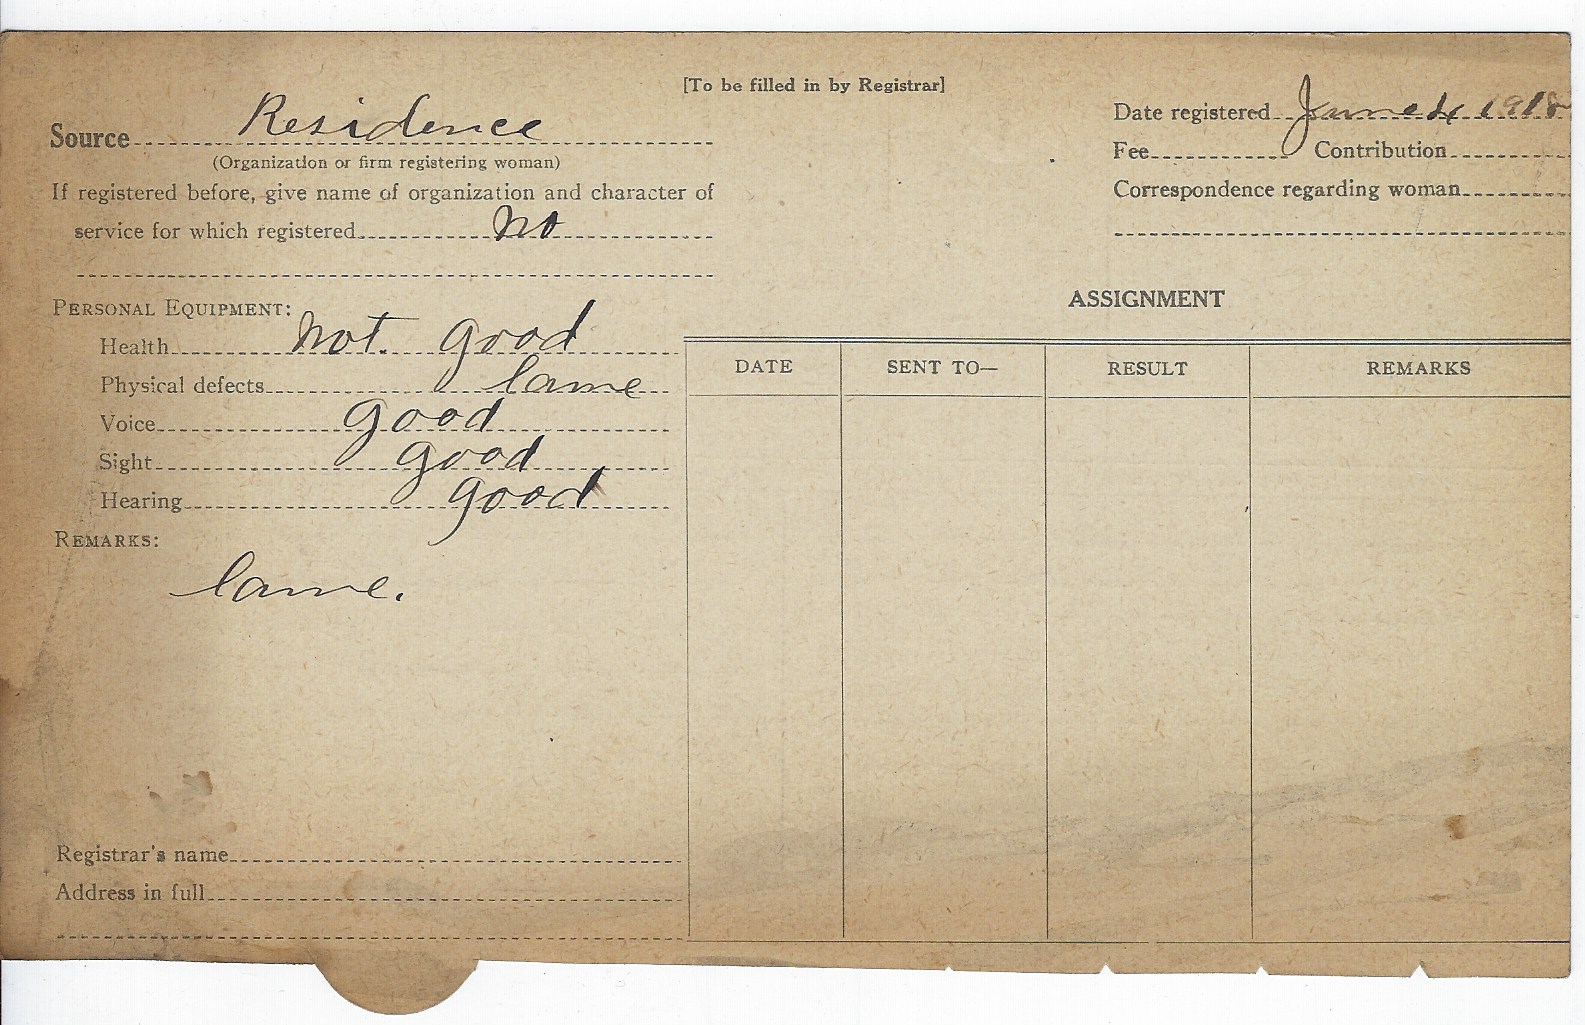 [To be filled in by Registrar]
Source Residence
(Organization or firm registering woman)
If registered before, give name of organization and character of
service for which registered No
Date registered June 4 1918
Fee Contribution
Correspondence regarding woman
PERSONAL EQUIPMENT:
Health Not good
Physical defects lame
Voice good
Sight good
Hearing good
REMARKS:
lame.
Registrar's name
Address in full
ASSIGNMENT
DATE SENT TO— RESULT REMARKS